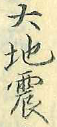 大地震